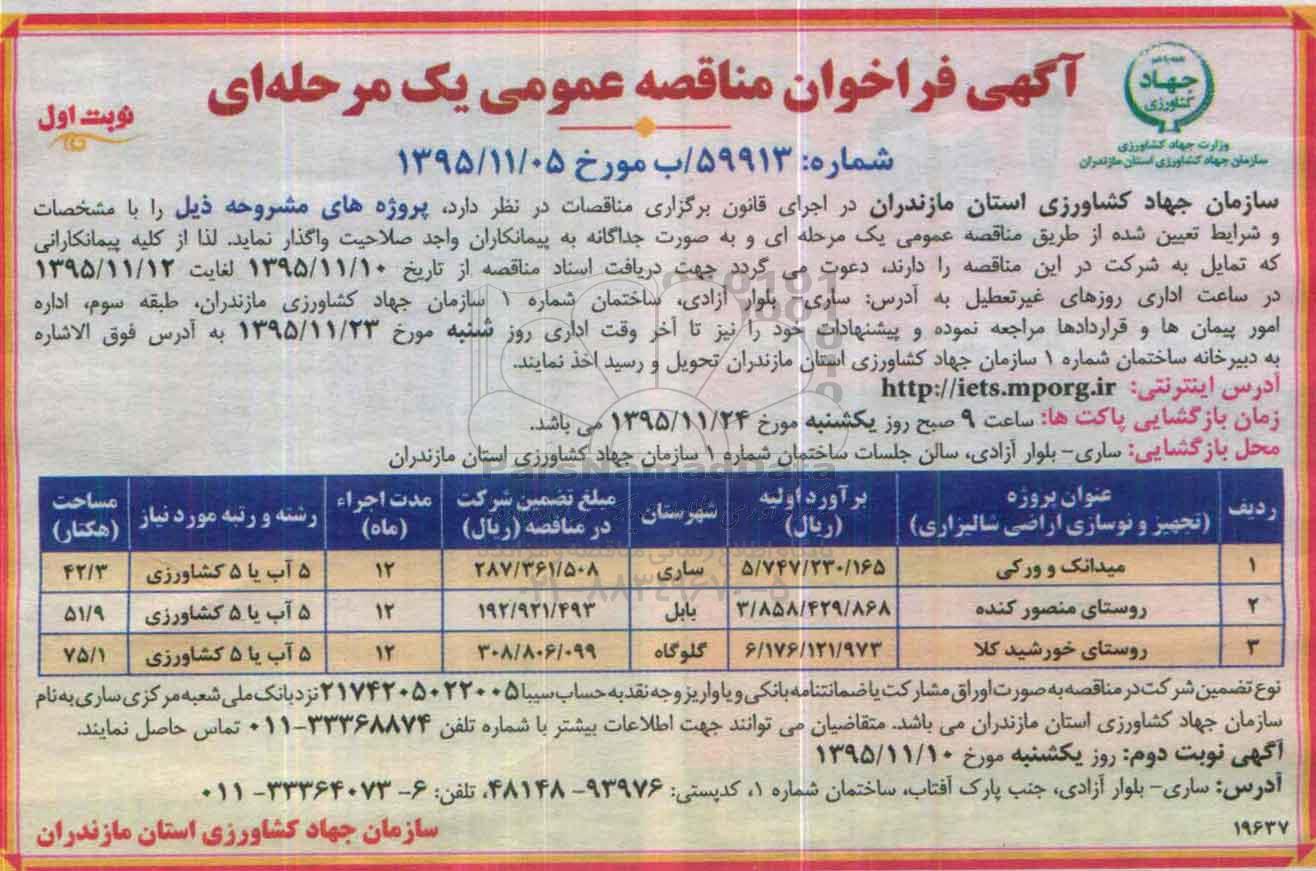 آگهی فراخوان مناقصه عمومی یک مرحله‌ای
نوبت اول
جهاد
کشاورزی
وزارت جهاد کشاورزی
سازمان جهاد کشاورزی استان مازندران
شماره: ۵۹۹۱۳/ب مورخ ۱۳۹۵/۱۱/۰۵
سازمان جهاد کشاورزی استان مازندران در اجرای قانون برگزاری مناقصات در نظر دارد، پروژه های مشروحه ذیل را با مشخصات
و شرایط تعیین شده از طریق مناقصه عمومی یک مرحله ای و به صورت جداگانه به پیمانکاران واجد صلاحیت واگذار نماید. لذا از کلیه پیمانکارانی
که تمایل به شرکت در این مناقصه را دارند، دعوت می گردد جهت دریافت اسناد مناقصه از تاریخ ۱۳۹۵/۱۱/۱۰ لغایت ۱۳۹۵/۱۱/۱۲
در ساعت اداری روزهای غیرتعطیل به آدرس: ساری- بلوار آزادی، ساختمان شماره ۱ سازمان جهاد کشاورزی مازندران، طبقه سوم، اداره
امور پیمان ها و قراردادها مراجعه نموده و پیشنهادات خود را نیز تا آخر وقت اداری روز شنبه مورخ ۱۳۹۵/۱۱/۲۳ به آدرس فوق الاشاره
به دبیرخانه ساختمان شماره ۱ سازمان جهاد کشاورزی استان مازندران تحویل و رسید اخذ نمایند.
آدرس اینترنتی: http://iets.mporg.ir
زمان بازگشایی پاکت ها: ساعت ۹ صبح روز یکشنبه مورخ ۱۳۹۵/۱۱/۲۴ می باشد.
محل بازگشایی: ساری- بلوار آزادی، سالن جلسات ساختمان شماره ۱ سازمان جهاد کشاورزی استان مازندران
ParsNamadData
ردیف عنوان پروژه (تجهیز و نوسازی اراضی شالیزاری) برآورد اولیه (ریال) شهرستان مبلغ تضمین شرکت در مناقصه (ریال) مدت اجراء (ماه) رشته و رتبه مورد نیاز مساحت (هکتار)
۱ میدانک و ورکی ۵/۷۴۷/۲۳۰/۱۶۵ ساری ۲۸۷/۳۶۱/۵۰۸ ۱۲ ۵ آب یا ۵ کشاورزی ۴۲/۳
۲ روستای منصور کنده ۳/۸۵۸/۴۲۹/۸۶۸ بابل ۱۹۲/۹۲۱/۴۹۳ ۱۲ ۵ آب یا ۵ کشاورزی ۵۱/۹
۳ روستای خورشید کلا ۶/۱۷۶/۱۲۱/۹۷۳ گلوگاه ۳۰۸/۸۰۶/۰۹۹ ۱۲ ۵ آب یا ۵ کشاورزی ۷۵/۱
نوع تضمین شرکت در مناقصه به صورت اوراق مشارکت یا ضمانتنامه بانکی و یا واریز وجه نقد به حساب سیبا ۲۱۷۴۲۰۵۰۲۲۰۰۵ نزد بانک ملی شعبه مرکزی ساری به نام
سازمان جهاد کشاورزی استان مازندران می باشد. متقاضیان می توانند جهت اطلاعات بیشتر با شماره تلفن ۳۳۳۶۸۸۷۴-۰۱۱ تماس حاصل نمایند.
آگهی نوبت دوم: روز یکشنبه مورخ ۱۳۹۵/۱۱/۱۰
آدرس: ساری- بلوار آزادی، جنب پارک آفتاب، ساختمان شماره ۱، کدپستی: ۹۳۹۷۶- ۴۸۱۴۸، تلفن: ۶- ۳۳۳۶۴۰۷۳- ۰۱۱
۱۹۶۳۷
سازمان جهاد کشاورزی استان مازندران